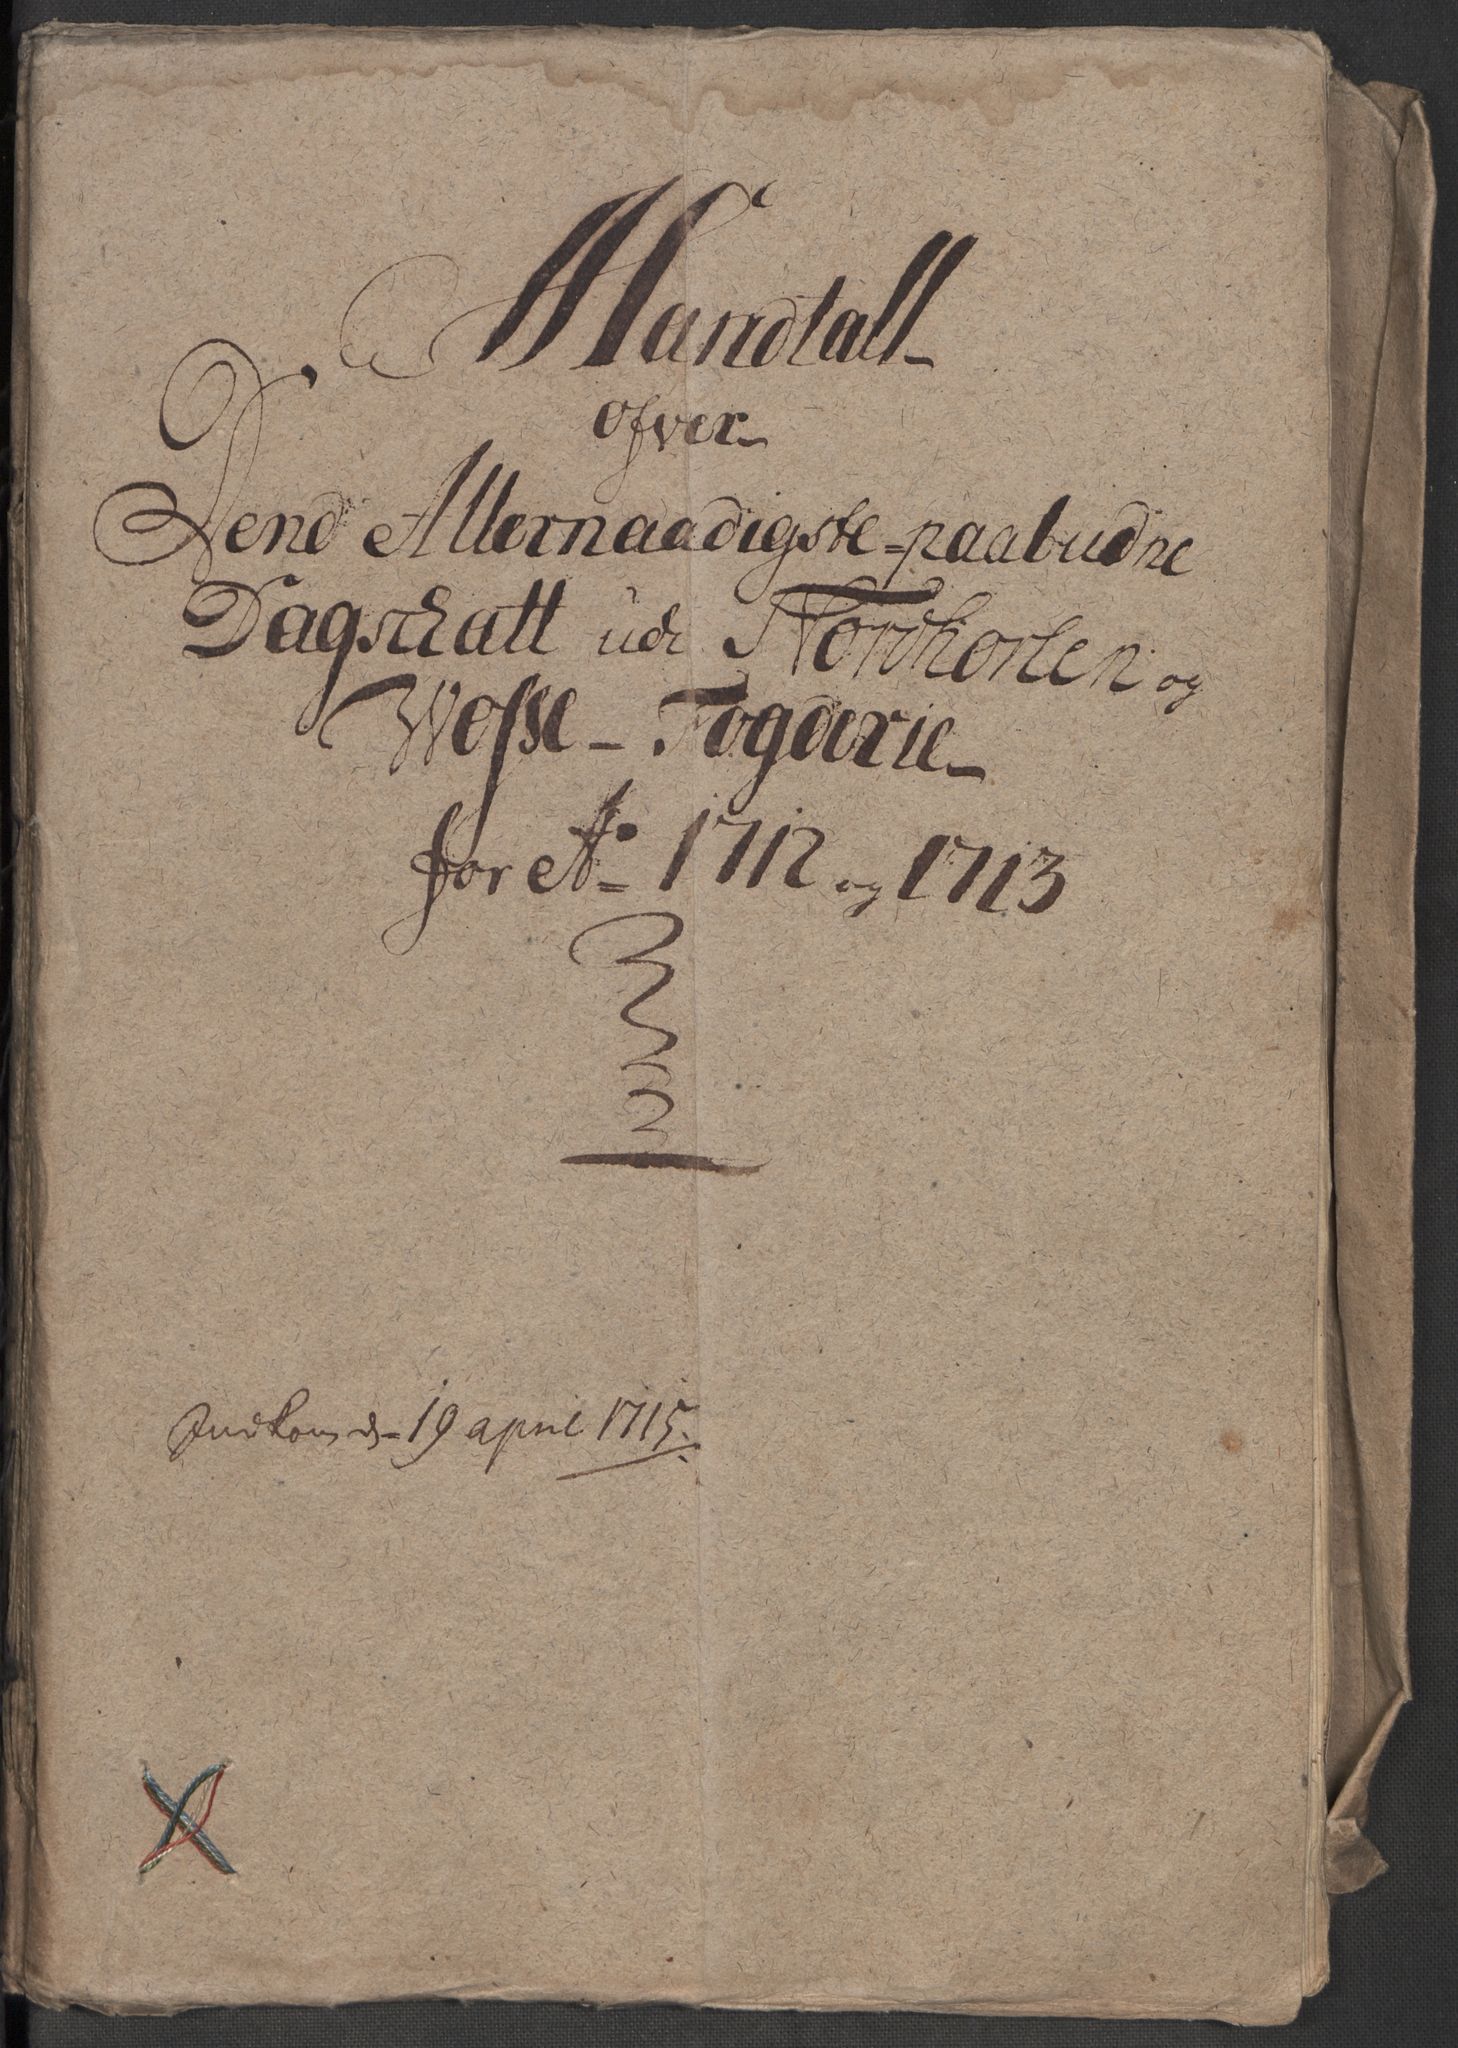 Mandtall
ofver
Dend Allernaadigste paabudne
Dagschatt udi Nordhorlen og
Wosse-Fogderie
for Ao 1712 og 1713
Indkom d. 19 april 1715.